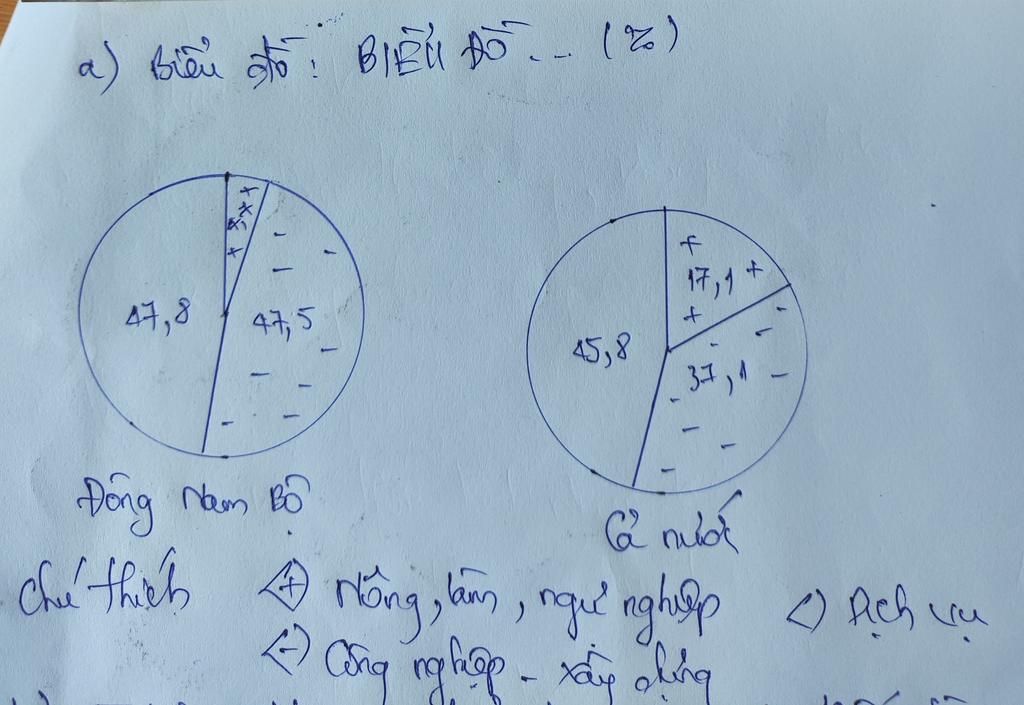 a) Biểu đồ: BIỂU ĐỒ... (%)
47,8
47,5
17,1
45,8
37,1
Đông Nam Bộ
Cả nước
Chú thích (+) Nông, lâm, ngư nghiệp () Dịch vụ
(-) Công nghiệp - xây dựng